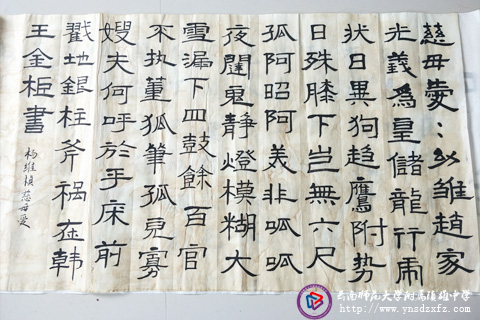 慈母愛〻幼雛趙家
光義為皇儲龍行虎
状日異狗趋鷹附势
日殊膝下豈無六尺
孤阿昭阿美非呱呱
夜闥鬼静燈模糊大
雪漏下四鼓餘百官
不执董狐筆孤兒寡
嫂夫何呼於乎床前
戳地銀柱斧祸在韓
王金柜書
杨維楨慈母愛
云南师范大学附属镇雄中学
www.ynsdzxfz.com